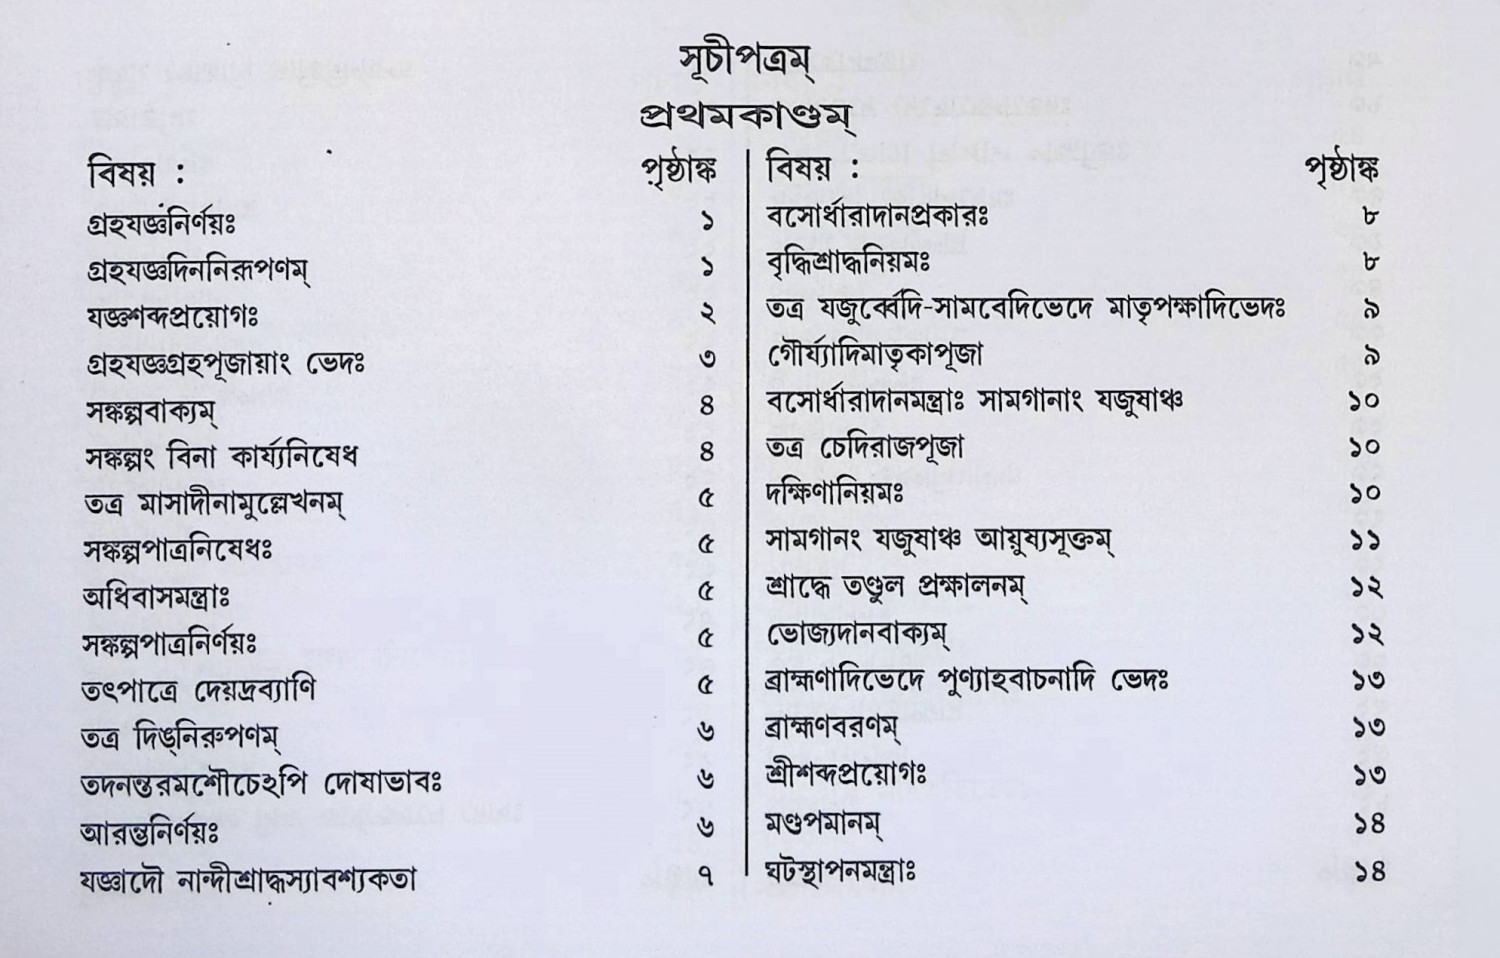 সূচীপত্রম্
প্রথমকাণ্ডম্
বিষয় : পৃষ্ঠাঙ্ক
গ্রহযজ্ঞনির্ণয়ঃ ১
গ্রহযজ্ঞদিননিরূপণম্ ১
যজ্ঞশব্দপ্রয়োগঃ ২
গ্রহযজ্ঞগ্রহপূজায়াং ভেদঃ ৩
সঙ্কল্পবাক্যম্ ৪
সঙ্কল্পং বিনা কার্য্যনিষেধ ৪
তত্র মাসাদীনামুল্লেখনম্ ৫
সঙ্কল্পপাত্রনিষেধঃ ৫
অধিবাসমন্ত্রাঃ ৫
সঙ্কল্পপাত্রনির্ণয়ঃ ৫
তৎপাত্রে দেয়দ্রব্যাণি ৫
তত্র দিঙ্‌নিরুপণম্ ৬
তদনন্তরমশৌচেঽপি দোষাভাবঃ ৬
আরম্ভনির্ণয়ঃ ৬
যজ্ঞাদৌ নান্দীশ্রাদ্ধস্যাবশ্যকতা ৭
বিষয় : পৃষ্ঠাঙ্ক
বসোর্ধারাদানপ্রকারঃ ৮
বৃদ্ধিশ্রাদ্ধনিয়মঃ ৮
তত্র যজুর্ব্বেদি-সামবেদিভেদে মাতৃপক্ষাদিভেদঃ ৯
গৌর্য্যাদিমাতৃকাপূজা ৯
বসোর্ধারাদানমন্ত্রাঃ সামগানাং যজুষাঞ্চ ১০
তত্র চেদিরাজপূজা ১০
দক্ষিণানিয়মঃ ১০
সামগানং যজুষাঞ্চ আয়ুষ্যসূক্তম্ ১১
শ্রাদ্ধে তণ্ডুল প্রক্ষালনম্ ১২
ভোজ্যদানবাক্যম্ ১২
ব্রাহ্মণাদিভেদে পুণ্যাহবাচনাদি ভেদঃ ১৩
ব্রাহ্মণবরণম্ ১৩
শ্রীশব্দপ্রয়োগঃ ১৩
মণ্ডপমানম্ ১৪
ঘটস্থাপনমন্ত্রাঃ ১৪